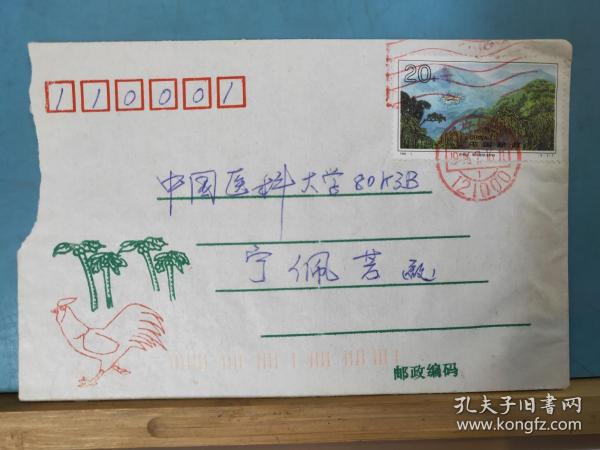 110001
20分
中国邮政
121000
中国医科大学80K3B
宁佩芳
邮政编码
孔夫子旧书网
www.kongfz.com